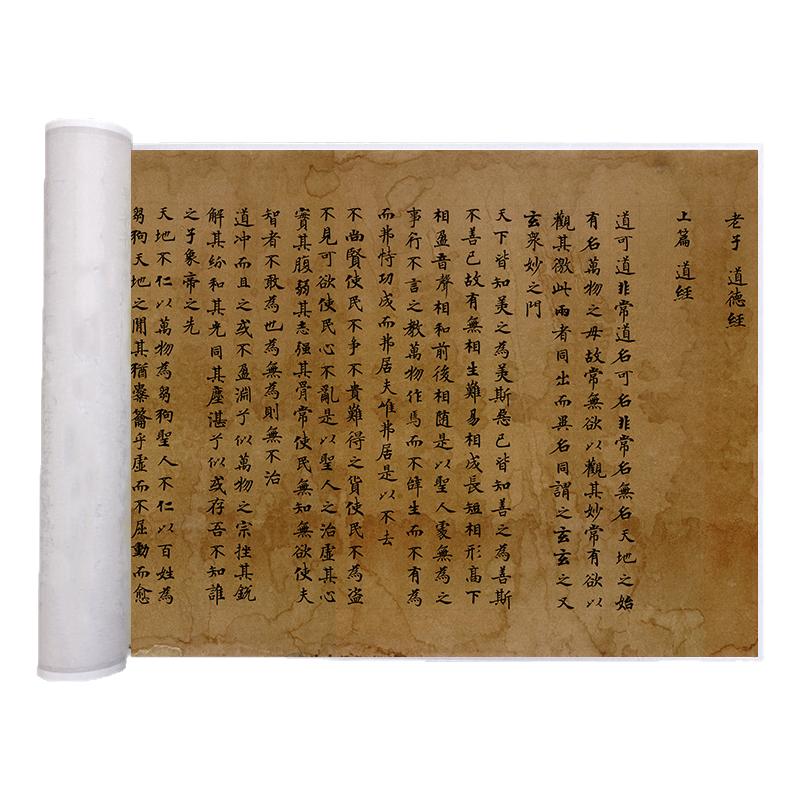 老子 道德經
上篇 道經
道可道非常道名可名非常名無名天地之始
有名萬物之母故常無欲以觀其妙常有欲以
觀其徼此兩者同出而異名同謂之玄玄之又
玄衆妙之門
天下皆知美之為美斯惡已皆知善之為善斯
不善已故有無相生難易相成長短相形高下
相盈音聲相和前後相随是以聖人處無為之
事行不言之教萬物作焉而不辭生而不有為
而弗恃功成而弗居夫唯弗居是以不去
不尚賢使民不爭不貴難得之貨使民不為盗
不見可欲使民心不亂是以聖人之治虛其心
實其腹弱其志强其骨常使民無知無欲使夫
智者不敢為也為無為則無不治
道冲而且之或不盈淵乎似萬物之宗挫其銳
解其紛和其光同其塵湛乎似或存吾不知誰
之子象帝之先
天地不仁以萬物為芻狗聖人不仁以百姓為
芻狗天地之間其猶橐籥乎虛而不屈動而愈